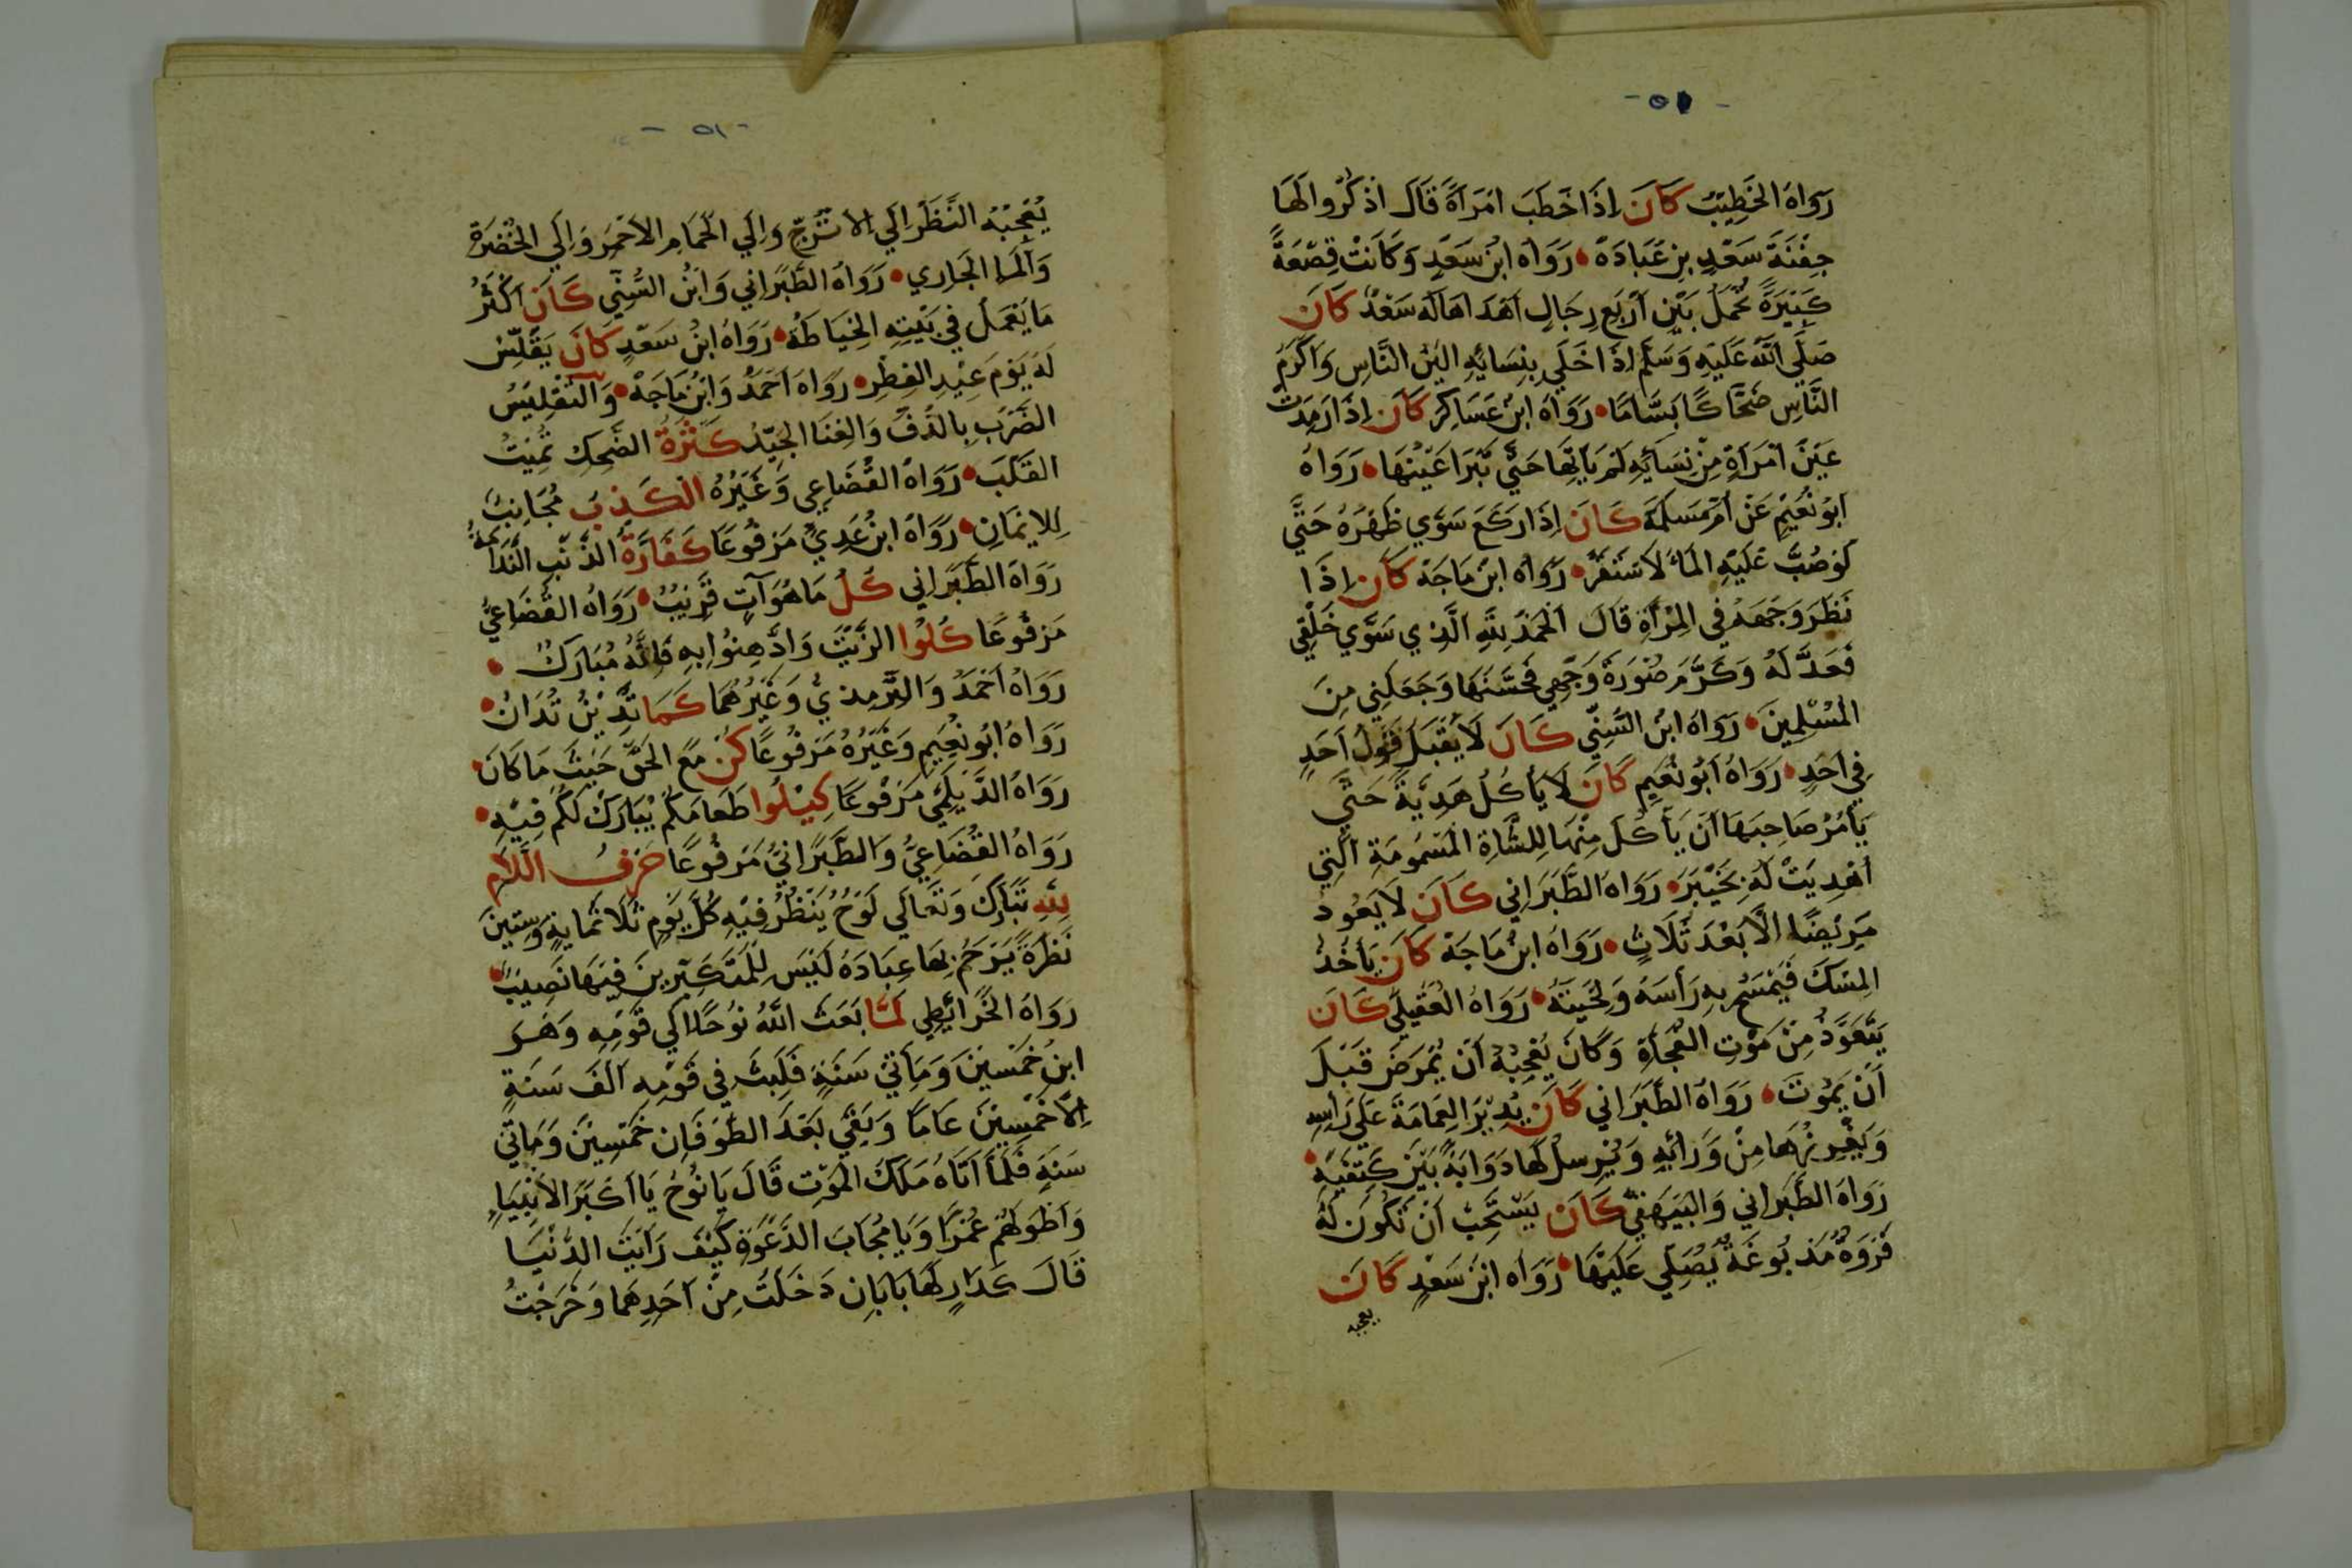 - ٥٠ -
رَوَاهُ الخَطِيبُ كَانَ اِذَا خَطَبَ امْرَأةً قَالَ اذْكُرُوا لَهَا
جِفْنَةَ سَعْدِ بنِ عُبَادَةَ • رَوَاهُ ابنُ سَعْدٍ وَكَانَتْ قِصْعَةً
كَبِيْرَةً تُحْمَلُ بَيْنَ أرْبَعِ رِجَالٍ اَهْدَاهَا لَهُ سَعْدٌ كَانَ
صَلَّى اللّٰهُ عَلَيْهِ وَسَلَّمَ اِذَا خَلَي بِنِسَائِهِ اليَنَ النَّاسِ وَاَكْرَمَ
النَّاسِ ضَحَّاكًا بَسَّامًا • رَوَاهُ ابنُ عَسَاكِرَ كَانَ اِذَا رَمِدَتْ
عَيْنُ امْرَأةٍ مِنْ نِسَائِهِ لَمْ يَأتِهَا حَتَّي تَبْرَا عَيْنُهَا • رَوَاهُ
اَبُو نُعَيْمٍ عَنْ اُمِّ سَلَمَةَ كَانَ اِذَا رَكَعَ سَوَّي ظَهْرَهُ حَتَّي
لَوْصُبَّ عَلَيْهِ المَاءُ لَاسْتَقَرَّ • رَوَاهُ ابنُ مَاجَهْ كَانَ اِذَا
نَظَرَ وَجْهَهُ فِي المِرْأةِ قَالَ الحَمْدُ لِلّٰهِ الَّذِي سَوَّي خَلْقِي
فَعَدَّ لَهُ وَكَرَّمَ صُوْرَةَ وَجْهِي فَحَسَّنَهَا وَجَعَلَنِي مِنَ
المُسْلِمِينَ • رَوَاهُ ابنُ السُّنِّي كَانَ لَا يَقْبَلُ قَوْلَ اَحَدٍ
فِي اَحَدٍ • رَوَاهُ اَبُو نُعَيْمٍ كَانَ لَا يَأكُلُ هَدِيَّةً حَتَّي
يَأمُرَ صَاحِبَهَا اَنْ يَأكُلَ مِنْهَا لِلشَّاةِ المَسْمُومَةِ الَّتِي
اُهْدِيَتْ لَهُ بِخَيْبَرَ • رَوَاهُ الطَّبَرَانِي كَانَ لَا يَعُودُ
مَرِيْضًا اِلَّا بَعْدَ ثَلَاثٍ • رَوَاهُ ابنُ مَاجَهْ كَانَ يَأخُذُ
المِسْكَ فَيَمْسَحُ بِهِ رَأسَهُ وَلِحْيَتَهُ • رَوَاهُ العُقَيْلِي كَانَ
يَتَعَوَّذُ مِنْ مَوْتِ الفُجْأةِ وَكَانَ يُعْجِبُهُ اَنْ يُمْرَضَ قَبْلَ
اَنْ يَمُوْتَ • رَوَاهُ الطَّبَرَانِي كَانَ يُدِيْرُ العِمَامَةَ عَلَي رَأسِهِ
وَيَغْرِزُهَا مِنْ وَرَائِهِ وَيُرْسِلُ لَهَا دَوَابَةً بَيْنَ كَتِفَيْهِ •
رَوَاهُ الطَّبَرَانِي وَالبَيْهَقِي كَانَ يَسْتَحِبُّ اَنْ تَكُونَ لَهُ
فَرْوَةٌ مَدْبُوغَةٌ يُصَلِّي عَلَيْهَا • رَوَاهُ ابنُ سَعْدٍ كَانَ
يعجبه
- ٥١ -
يُعْجِبُهُ النَّظَرُ اِلَي الأتْرُجِّ وَاِلَي الحَمَامِ الاَحْمَرِ وَاِلَي الخُضْرَةِ
وَالمَاءِ الجَارِي • رَوَاهُ الطَّبَرَانِي وَابنُ السُّنِّي كَانَ اَكْثَرُ
مَا يَعْمَلُ فِي بَيْتِهِ الخِيَاطَةُ • رَوَاهُ ابنُ سَعْدٍ كَانَ يُقَلَّسُ
لَهُ يَوْمَ عِيْدِ الفِطْرِ • رَوَاهُ اَحْمَدُ وَابنُ مَاجَهْ • وَالتَّقْلِيْسُ
الضَرْبُ بِالدُّفِّ وَالغِنَا الجَيِّدُ كَثْرَةُ الضَّحِكِ تُمِيْتُ
القَلْبَ • رَوَاهُ القُضَاعِي وَغَيْرُهُ الكَذِبُ مُجَانِبٌ
لِلاِيْمَانِ • رَوَاهُ ابنُ عَدِيٍّ مَرْفُوعًا كَفَارَةُ الذَّنْبِ النَّدَامَةُ
رَوَاهُ الطَّبَرَانِي كُلُّ مَا هُوَ آتٍ قَرِيْبٌ • رَوَاهُ القُضَاعِيُّ
مَرْفُوعًا كُلُوْا الزَّيْتَ وَادَّهِنُوا بِهِ فَاِنَّهُ مُبَارَكٌ •
رَوَاهُ اَحْمَدُ وَالتِّرْمِذِيُّ وَغَيْرُهُمَا كَمَا تَدِيْنُ تُدَانُ •
رَوَاهُ اَبُو نُعَيْمٍ وَغَيْرُهُ مَرْفُوعًا كُنْ مَعَ الحَقِّ حَيْثُ مَا كَانَ •
رَوَاهُ الدَّيْلَمِيُّ مَرْفُوعًا كِيْلُوا طَعَامَكُمْ يُبَارَكْ لَكُمْ فِيْهِ •
رَوَاهُ القُضَاعِيُّ وَالطَّبَرَانِيُّ مَرْفُوعًا حَرْفُ اللَّامِ
لِلّٰهِ تَبَارَكَ وَتَعَالَي لَوْحٌ يَنْظُرُ فِيْهِ كُلَّ يَوْمٍ ثَلَاثمَايَةٍ وَسِتِّينَ
نَظْرَةً يَرْحَمُ بِهَا عِبَادَهُ لَيْسَ لِلْمُتَكَبِّرِينَ فِيْهَا نَصِيْبٌ •
رَوَاهُ الخَرَائِطِي لَمَّا بَعَثَ اللّٰهُ نُوْحًا اِلَي قَوْمِهِ وَهُوَ
ابنُ خَمْسِيْنَ وَمَأتَيْ سَنَةٍ فَلَبِثَ فِي قَوْمِهِ اَلْفَ سَنَةٍ
اِلَّا خَمْسِيْنَ عَامًا وَبَقِي بَعْدَ الطُّوفَانِ خَمْسِيْنَ وَمَأتَي
سَنَةٍ فَلَمَّا اَتَاهُ مَلَكُ المَوْتِ قَالَ يَا نُوْحُ يَا اَكْبَرَ الاَنْبِيَاءِ
وَاَطْوَلَهُمْ عُمْرًا وَيَا مُجَابَ الدَّعْوَةِ كَيْفَ رَأيْتَ الدُّنْيَا
قَالَ كَدَارٍ لَهَا بَابَانِ دَخَلْتُ مِنْ اَحَدِهِمَا وَخَرَجْتُ